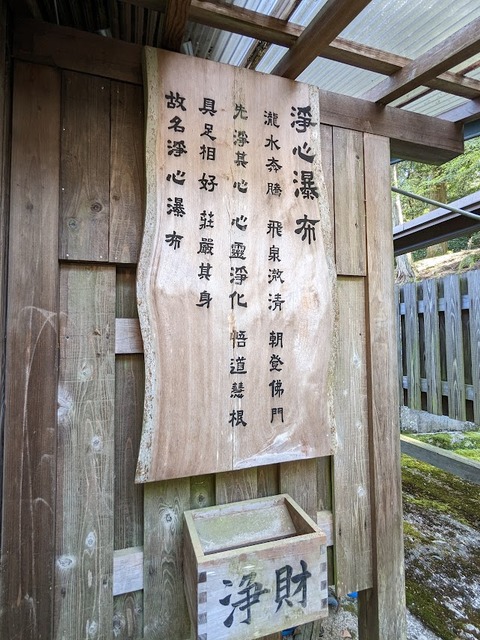 淨心瀑布
瀧水奔騰 飛泉澂清 朝登佛門
先淨其心 心靈淨化 悟道慧根
具足相好 莊嚴其身
故名淨心瀑布
浄財